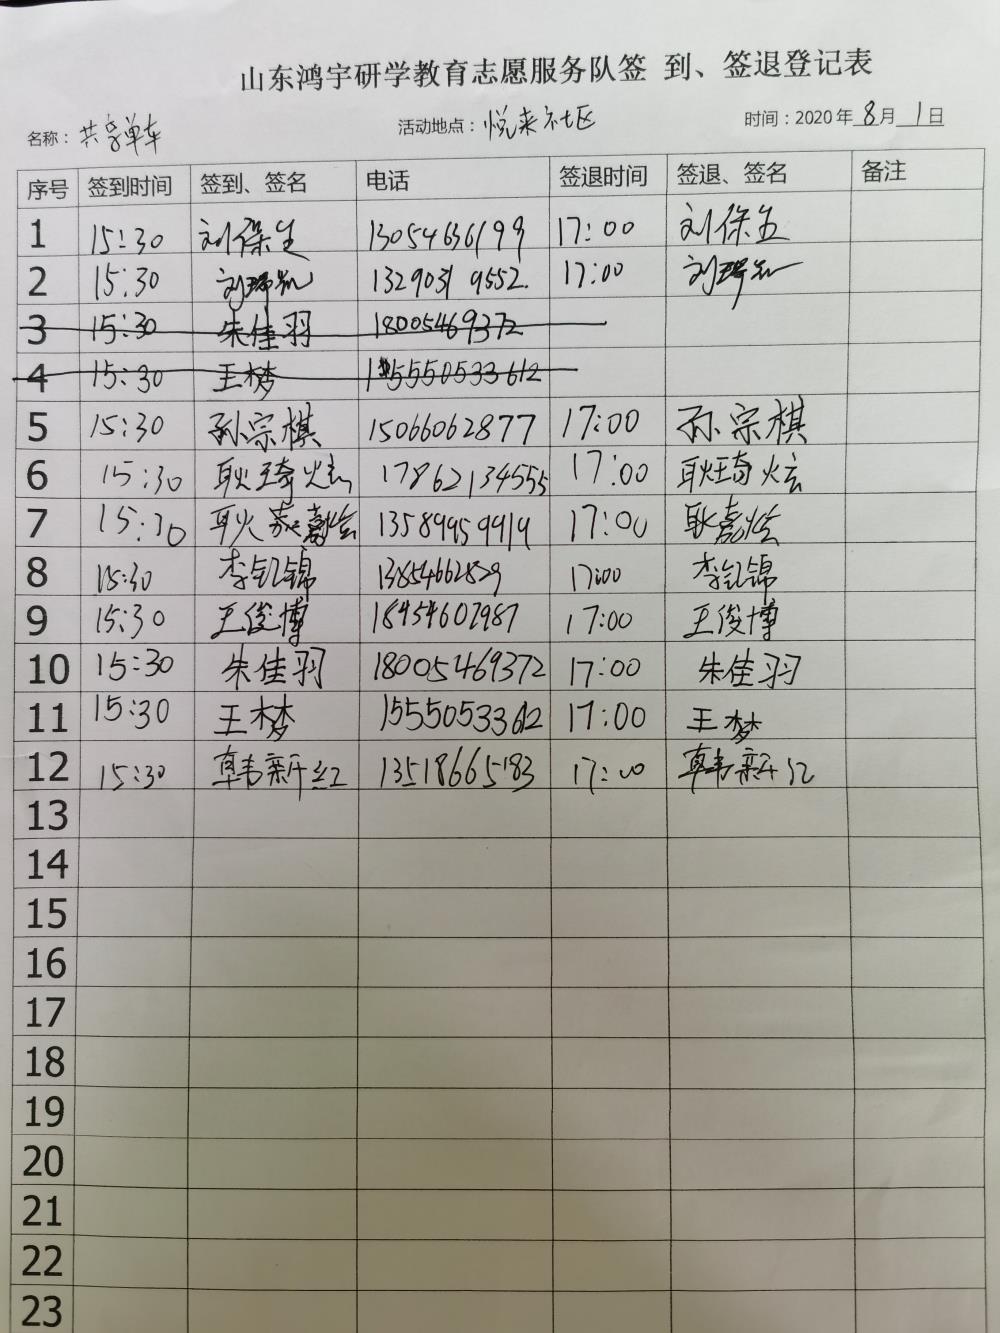 山东鸿宇研学教育志愿服务队签 到、签退登记表
名称：共享单车 活动地点：悦来社区 时间：2020年8月1日
序号 签到时间 签到、签名 电话 签退时间 签退、签名 备注
1 15:30 刘保生 13054636199 17:00 刘保生
2 15:30 刘瑞 13290319552. 17:00 刘瑞
3 15:30 朱佳羽 18005469372
4 15:30 王梦 15550533612
5 15:30 孙宗棋 15066062877 17:00 孙宗棋
6 15:30 耿琦炫 17862134555 17:00 耿琦炫
7 15:30 耿嘉炫 13589959919 17:00 耿嘉炫
8 15:30 李钇锦 13854662829 17:00 李钇锦
9 15:30 王俊博 18454602987 17:00 王俊博
10 15:30 朱佳羽 18005469372 17:00 朱佳羽
11 15:30 王梦 15550533612 17:00 王梦
12 15:30 韩新红 13518665183 17:00 韩新红
13
14
15
16
17
18
19
20
21
22
23